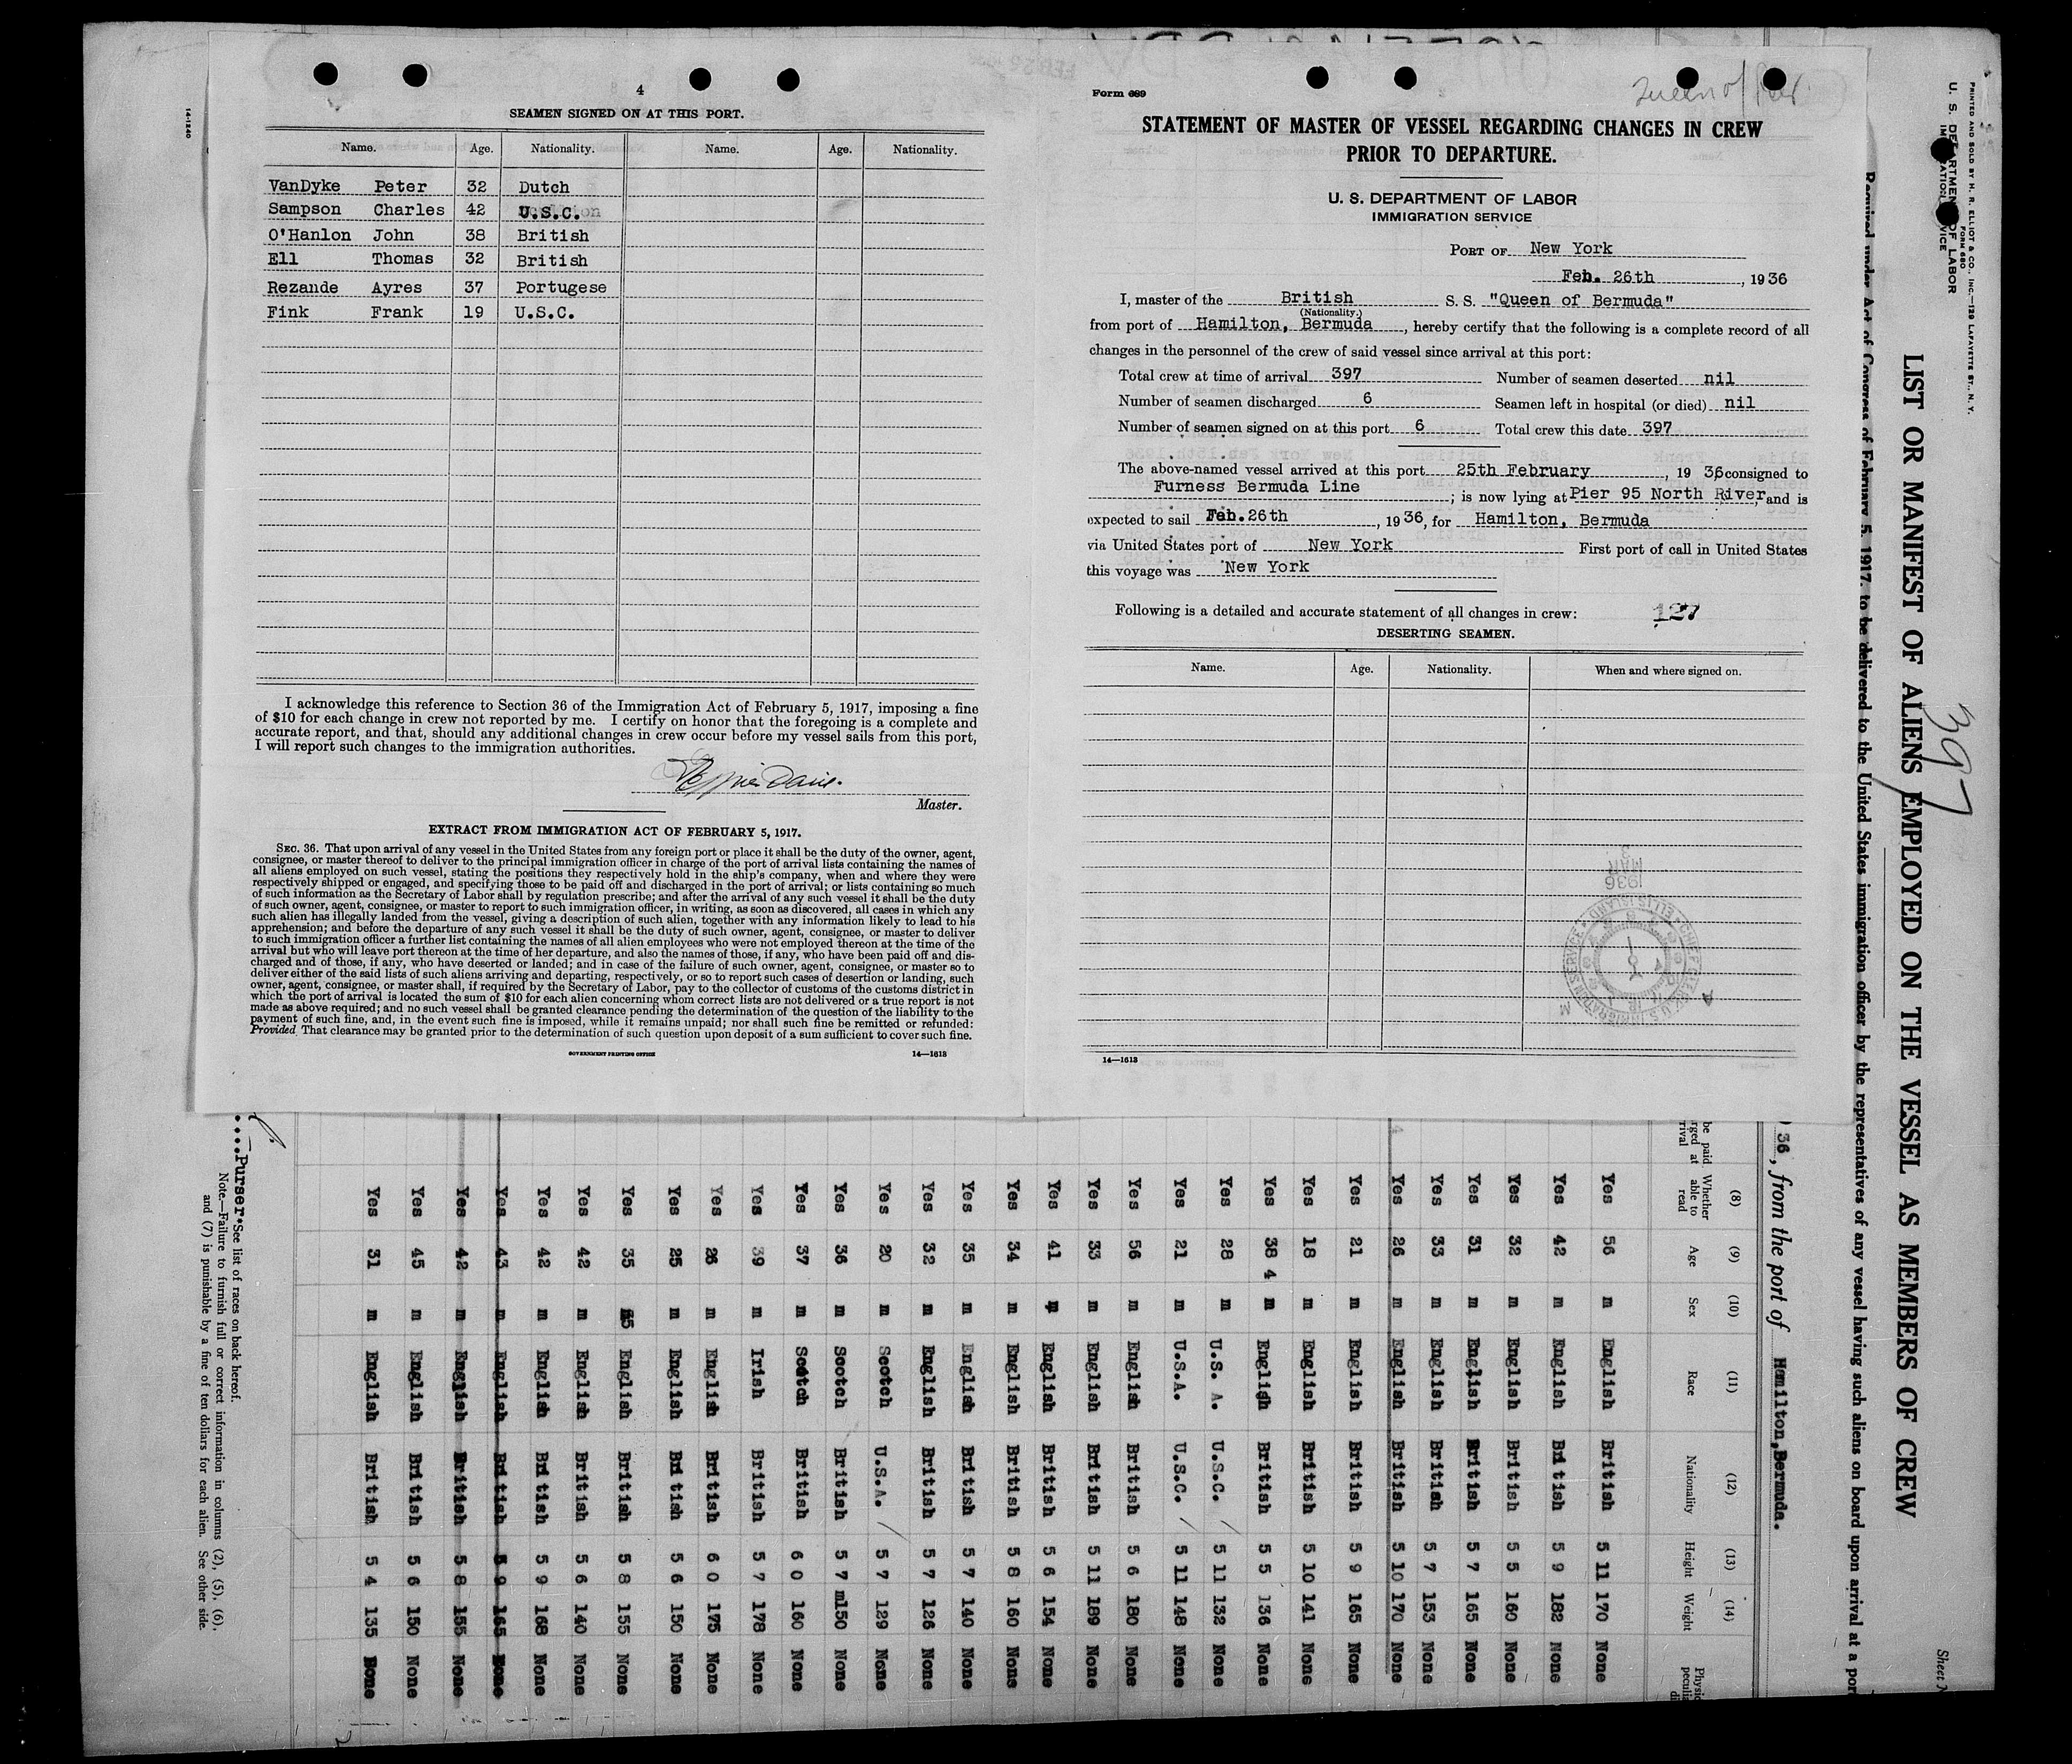 4
SEAMEN SIGNED ON AT THIS PORT.
Name. Age. Nationality. Name. Age. Nationality.
VanDyke Peter 32 Dutch
Sampson Charles 42 U.S.C.
O'Hanlon John 38 British
Ell Thomas 32 British
Rezande Ayres 37 Portugese
Fink Frank 19 U.S.C.
I acknowledge this reference to Section 36 of the Immigration Act of February 5, 1917, imposing a fine
of $10 for each change in crew not reported by me. I certify on honor that the foregoing is a complete and
accurate report, and that, should any additional changes in crew occur before my vessel sails from this port,
I will report such changes to the immigration authorities.
Master.
EXTRACT FROM IMMIGRATION ACT OF FEBRUARY 5, 1917.
SEC. 36. That upon arrival of any vessel in the United States from any foreign port or place it shall be the duty of the owner, agent,
consignee, or master thereof to deliver to the principal immigration officer in charge of the port of arrival lists containing the names of
all aliens employed on such vessel, stating the positions they respectively hold in the ship's company, when and where they were
respectively shipped or engaged, and specifying those to be paid off and discharged in the port of arrival; or lists containing so much
of such information as the Secretary of Labor shall by regulation prescribe; and after the arrival of any such vessel it shall be the duty
of such owner, agent, consignee, or master to report to such immigration officer, in writing, as soon as discovered, all cases in which any
such alien has illegally landed from the vessel, giving a description of such alien, together with any information likely to lead to his
apprehension; and before the departure of any such vessel it shall be the duty of such owner, agent, consignee, or master to deliver
to such immigration officer a further list containing the names of all alien employees who were not employed thereon at the time of the
arrival but who will leave port thereon at the time of her departure, and also the names of those, if any, who have been paid off and dis-
charged and of those, if any, who have deserted or landed; and in case of the failure of such owner, agent, consignee, or master so to
deliver either of the said lists of such aliens arriving and departing, respectively, or so to report such cases of desertion or landing, such
owner, agent, consignee, or master shall, if required by the Secretary of Labor, pay to the collector of customs of the customs district in
which the port of arrival is located the sum of $10 for each alien concerning whom correct lists are not delivered or a true report is not
made as above required; and no such vessel shall be granted clearance pending the determination of the question of the liability to the
payment of such fine, and, in the event such fine is imposed, while it remains unpaid; nor shall such fine be remitted or refunded:
Provided That clearance may be granted prior to the determination of such question upon deposit of a sum sufficient to cover such fine.
GOVERNMENT PRINTING OFFICE 14—1613
14-1240
Form 689
Queen of Ber.
STATEMENT OF MASTER OF VESSEL REGARDING CHANGES IN CREW
PRIOR TO DEPARTURE.
U. S. DEPARTMENT OF LABOR
IMMIGRATION SERVICE
PORT OF New York
Feb. 26th, 1936
I, master of the British S. S. "Queen of Bermuda"
(Nationality.)
from port of Hamilton, Bermuda, hereby certify that the following is a complete record of all
changes in the personnel of the crew of said vessel since arrival at this port:
Total crew at time of arrival 397 Number of seamen deserted nil
Number of seamen discharged 6 Seamen left in hospital (or died) nil
Number of seamen signed on at this port 6 Total crew this date 397
The above-named vessel arrived at this port 25th February, 1936, consigned to
Furness Bermuda Line; is now lying at Pier 95 North River, and is
expected to sail Feb. 26th, 1936, for Hamilton, Bermuda
via United States port of New York First port of call in United States
this voyage was New York
Following is a detailed and accurate statement of all changes in crew: 127
DESERTING SEAMEN.
Name. Age. Nationality. When and where signed on.
MAR 3 1936
14—1613
PRINTED AND SOLD BY H. R. ELLIOT & CO., INC.—129 LAFAYETTE ST., N. Y.
FORM 680
U. S. DEPARTMENT OF LABOR
397
LIST OR MANIFEST OF ALIENS EMPLOYED ON THE VESSEL AS MEMBERS OF CREW
Required under Act of Congress of February 5, 1917, to be delivered to the United States immigration officer by the representatives of any vessel having such aliens on board upon arrival at a por
36, from the port of Hamilton,Bermuda.
(8) (9) (10) (11) (12) (13) (14)
Whether able to read Age Sex Race Nationality Height Weight
Yes 56 m English British 5 11 170 None
Yes 42 m English British 5 9 182 None
Yes 32 m English British 5 5 160 None
Yes 31 m English British 5 7 165 None
Yes 33 m English British 5 7 153 None
Yes 26 m English British 5 10 170 None
Yes 21 m English British 5 9 165 None
Yes 18 m English British 5 10 141 None
Yes 38 4 m English British 5 5 136 None
Yes 28 m U.S. A. U.S.C. 5 11 132 None
Yes 21 m U.S.A. U.S.C. 5 11 148 None
Yes 56 m English British 5 6 180 None
Yes 33 m English British 5 11 189 None
Yes 41 m English British 5 6 154 None
Yes 34 m English British 5 8 160 None
Yes 35 m English British 5 7 140 None
Yes 32 m English British 5 7 126 None
Yes 20 m Scotch U.S.A. 5 7 129 None
Yes 36 m Scotch British 5 7 m150 None
Yes 37 m Scotch British 6 0 160 None
Yes 39 m Irish British 5 7 178 None
Yes 26 m English British 6 0 175 None
Yes 25 m English British 5 6 150 None
Yes 35 English British 5 8 155 None
Yes 42 m English British 5 6 140 None
Yes 42 m English British 5 9 168 None
Yes 43 m English British 5 9 165 None
Yes 42 m English British 5 8 155 None
Yes 45 m English British 5 6 150 None
Yes 31 m English British 5 4 135 None
....Purser. *See list of races on back hereof.
Note.—Failure to furnish full or correct information in columns (2), (5), (6),
and (7) is punishable by a fine of ten dollars for each alien. See other side.